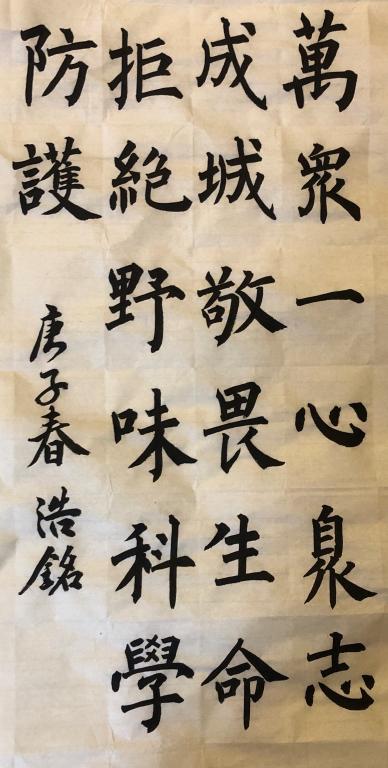 萬眾一心衆志
成城敬畏生命
拒絕野味科學
防護
庚子春 浩銘